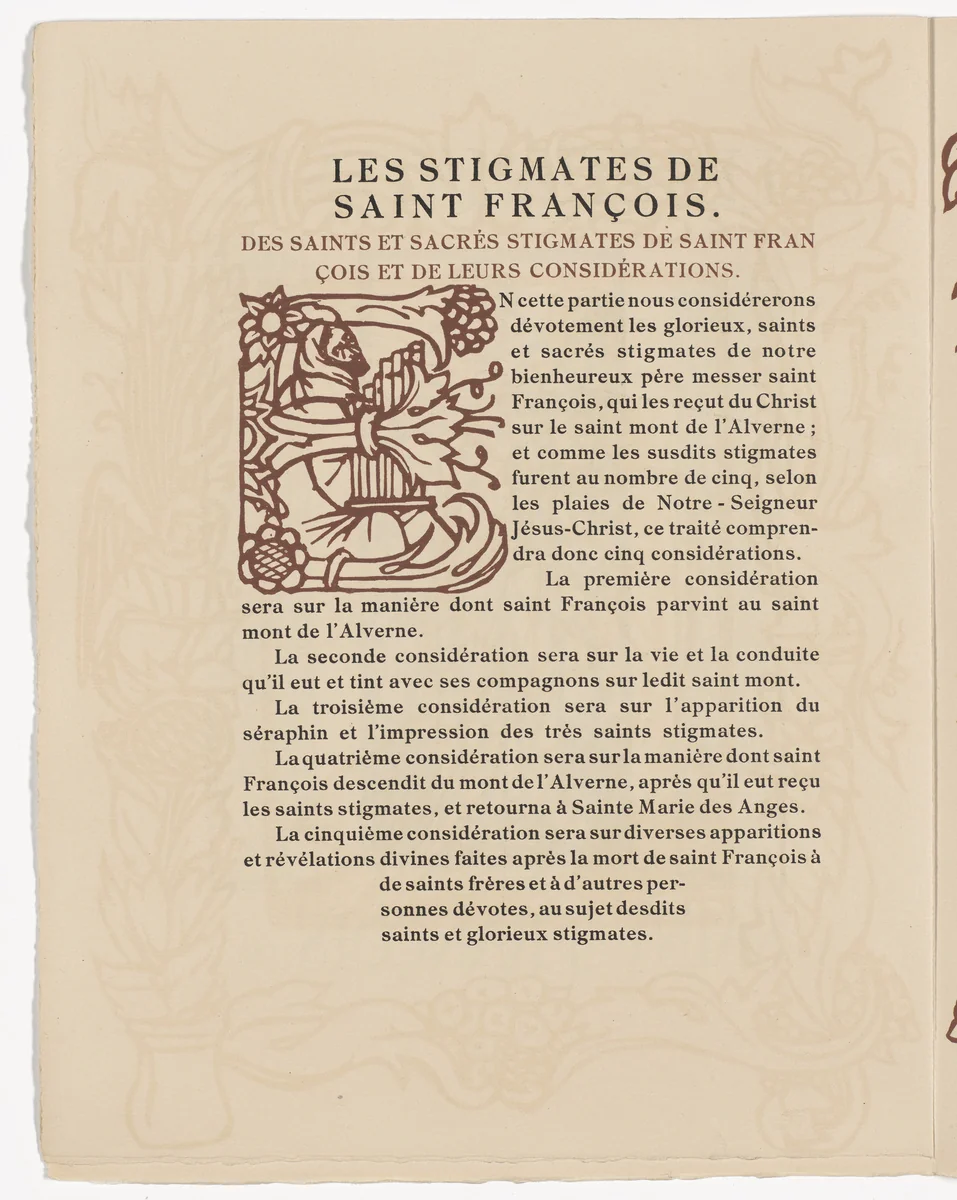 LES STIGMATES DE
SAINT FRANÇOIS.
DES SAINTS ET SACRÉS STIGMATES DE SAINT FRAN
ÇOIS ET DE LEURS CONSIDÉRATIONS.
EN cette partie nous considérerons
dévotement les glorieux, saints
et sacrés stigmates de notre
bienheureux père messer saint
François, qui les reçut du Christ
sur le saint mont de l'Alverne ;
et comme les susdits stigmates
furent au nombre de cinq, selon
les plaies de Notre - Seigneur
Jésus-Christ, ce traité compren-
dra donc cinq considérations.
La première considération
sera sur la manière dont saint François parvint au saint
mont de l'Alverne.
La seconde considération sera sur la vie et la conduite
qu'il eut et tint avec ses compagnons sur ledit saint mont.
La troisième considération sera sur l'apparition du
séraphin et l'impression des très saints stigmates.
La quatrième considération sera sur la manière dont saint
François descendit du mont de l'Alverne, après qu'il eut reçu
les saints stigmates, et retourna à Sainte Marie des Anges.
La cinquième considération sera sur diverses apparitions
et révélations divines faites après la mort de saint François à
de saints frères et à d'autres per-
sonnes dévotes, au sujet desdits
saints et glorieux stigmates.